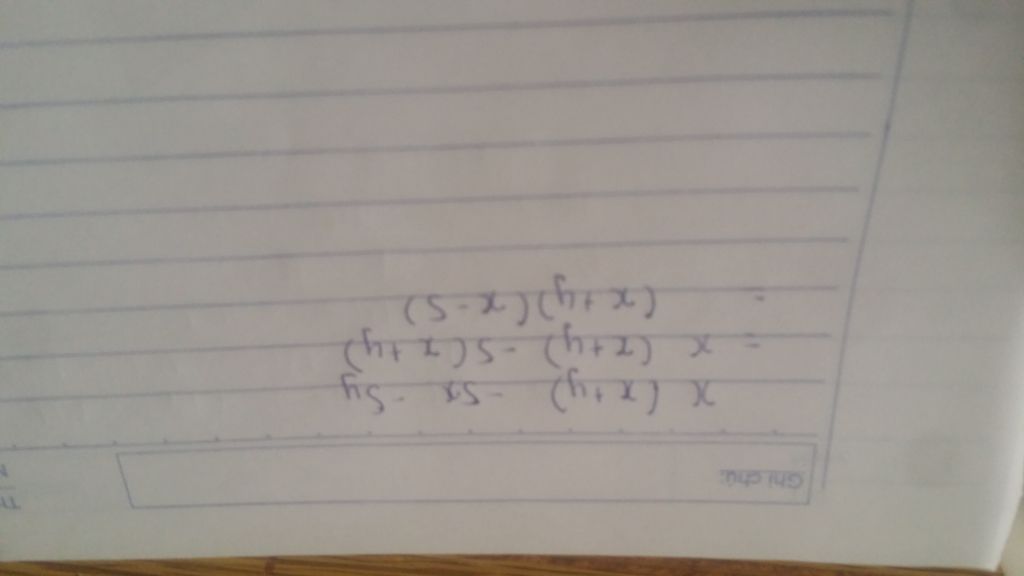 Ghi chú:
x (x+y) -5x -5y
= x (x+y) -5(x+y)
= (x+y)(x-5)